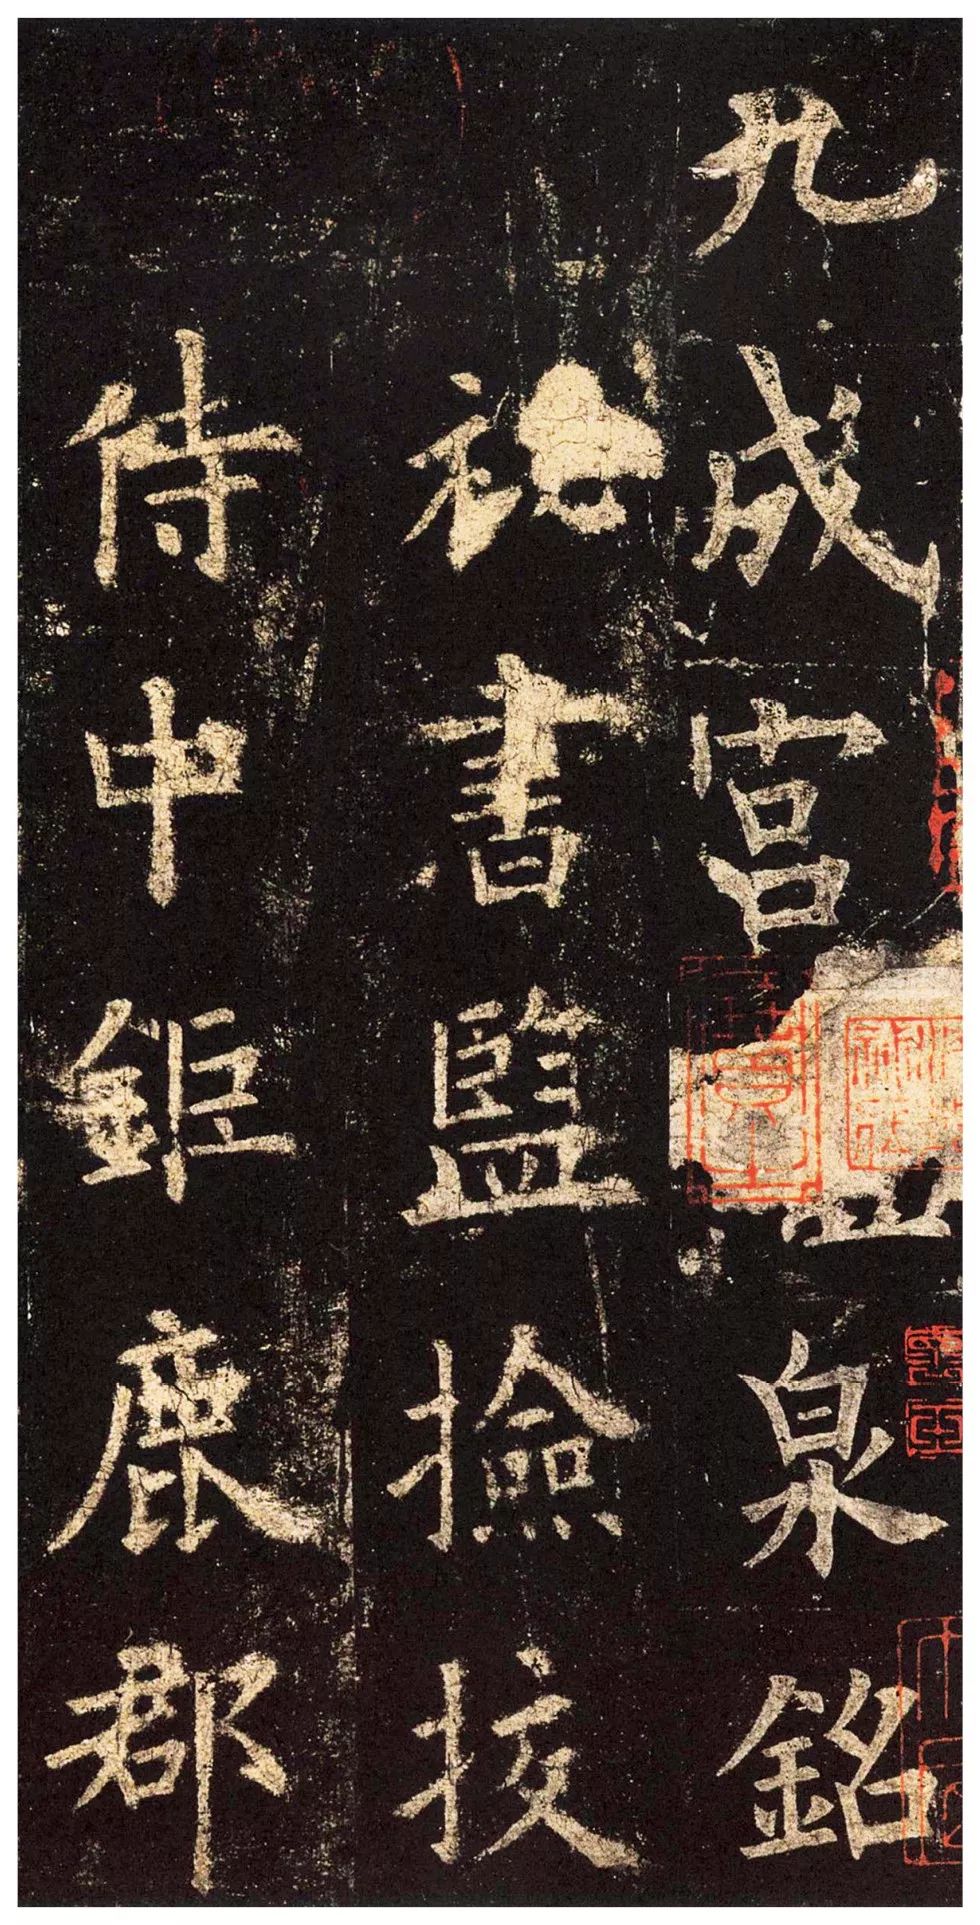 九成宮泉銘
祕書監撿挍
侍中鉅鹿郡